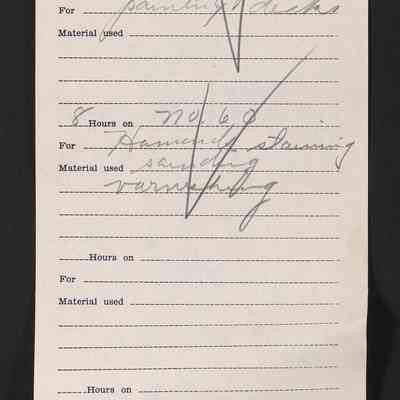 For painting decks
Material used
8 Hours on No. 60
For Hamonds staining
Material used sanding
varnishing
Hours on
For
Material used
Hours on